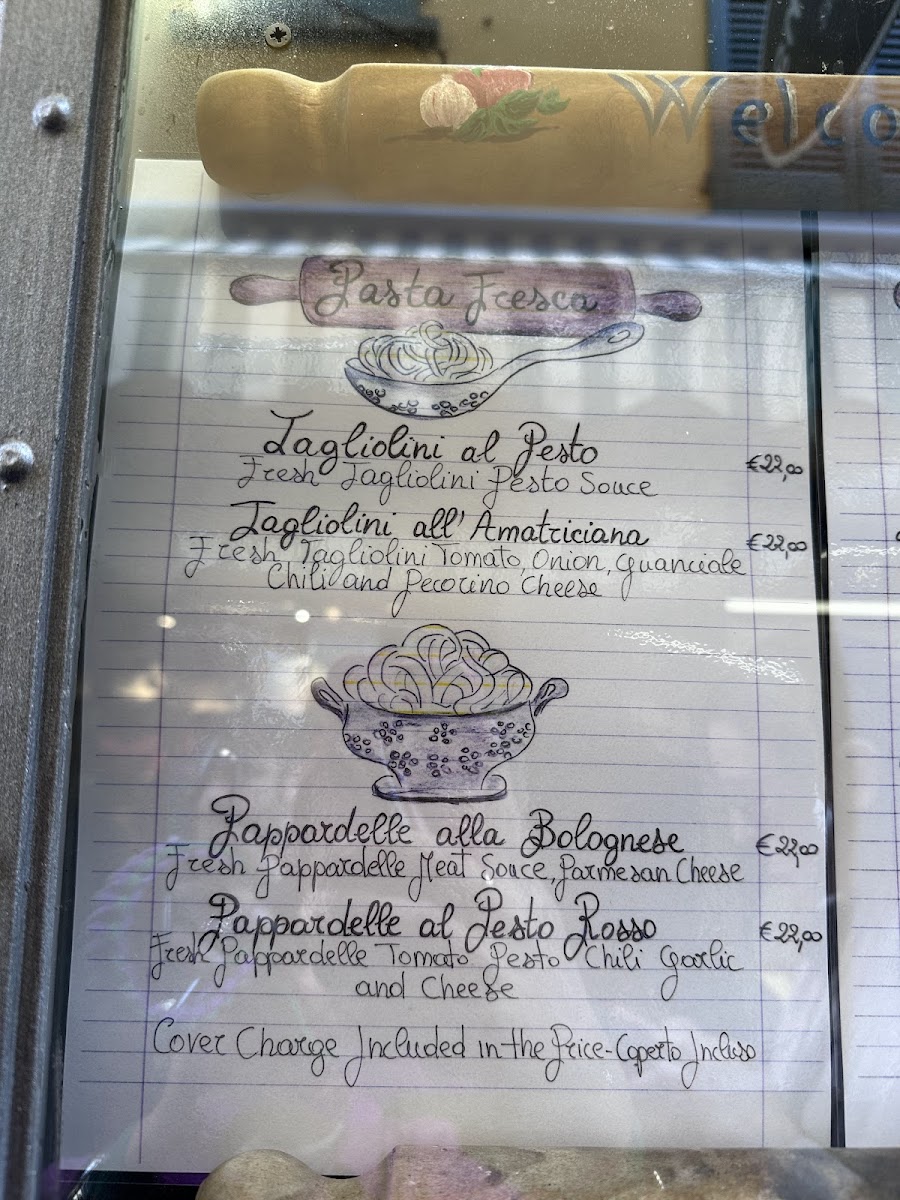 Welco
Pasta Fresca
Tagliolini al Pesto €22,00
Fresh Tagliolini Pesto Souce
Tagliolini all' Amatriciana €22,00
Fresh Tagliolini Tomato, Onion, guanciale
Chili and Pecorino Cheese
Pappardelle alla Bolognese €22,00
Fresh Pappardelle Meat Souce, Parmesan Cheese
Pappardelle al Pesto Rosso €22,00
Fresh Pappardelle Tomato Pesto Chili garlic
and Cheese
Cover Charge Included in the Price-Coperto Incluso